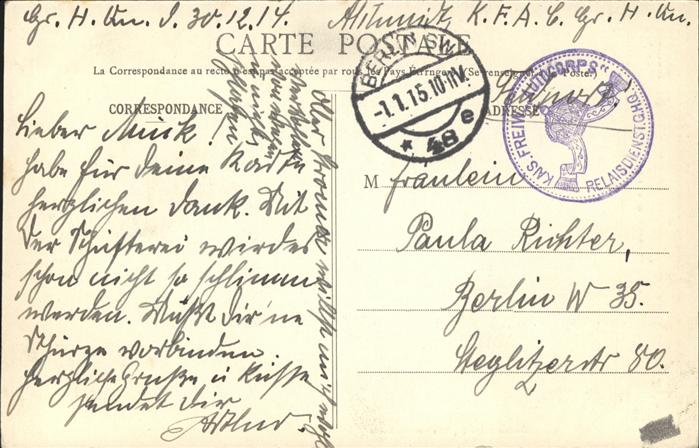 Gr. H. Qu. d. 30.12.14. A. Schmidt, K. F. A. C. Gr. H. Qu.
CARTE POSTALE
La Correspondance au recto n'est pas acceptée par tous les Pays Étrangers (Se renseigner à la Poste.)
CORRESPONDANCE
Lieber Muck!
habe für Deine Karte
herzlichen Dank. Mit
der Schifferei wird es
schon nicht so schlimm
werden. Mußt Dir 'ne
Schürze vorbinden.
Herzliche Grüße u Küsse
sendet Dir
BERLIN SW
-1.1.15.10-11V.
* 48 e
KAIS. FREIW. AUTOCORPS
RELAISDIENST
ADRESSE
M Fräulein
Paula Richter,
Berlin W 35.
Steglitzerstr 80.